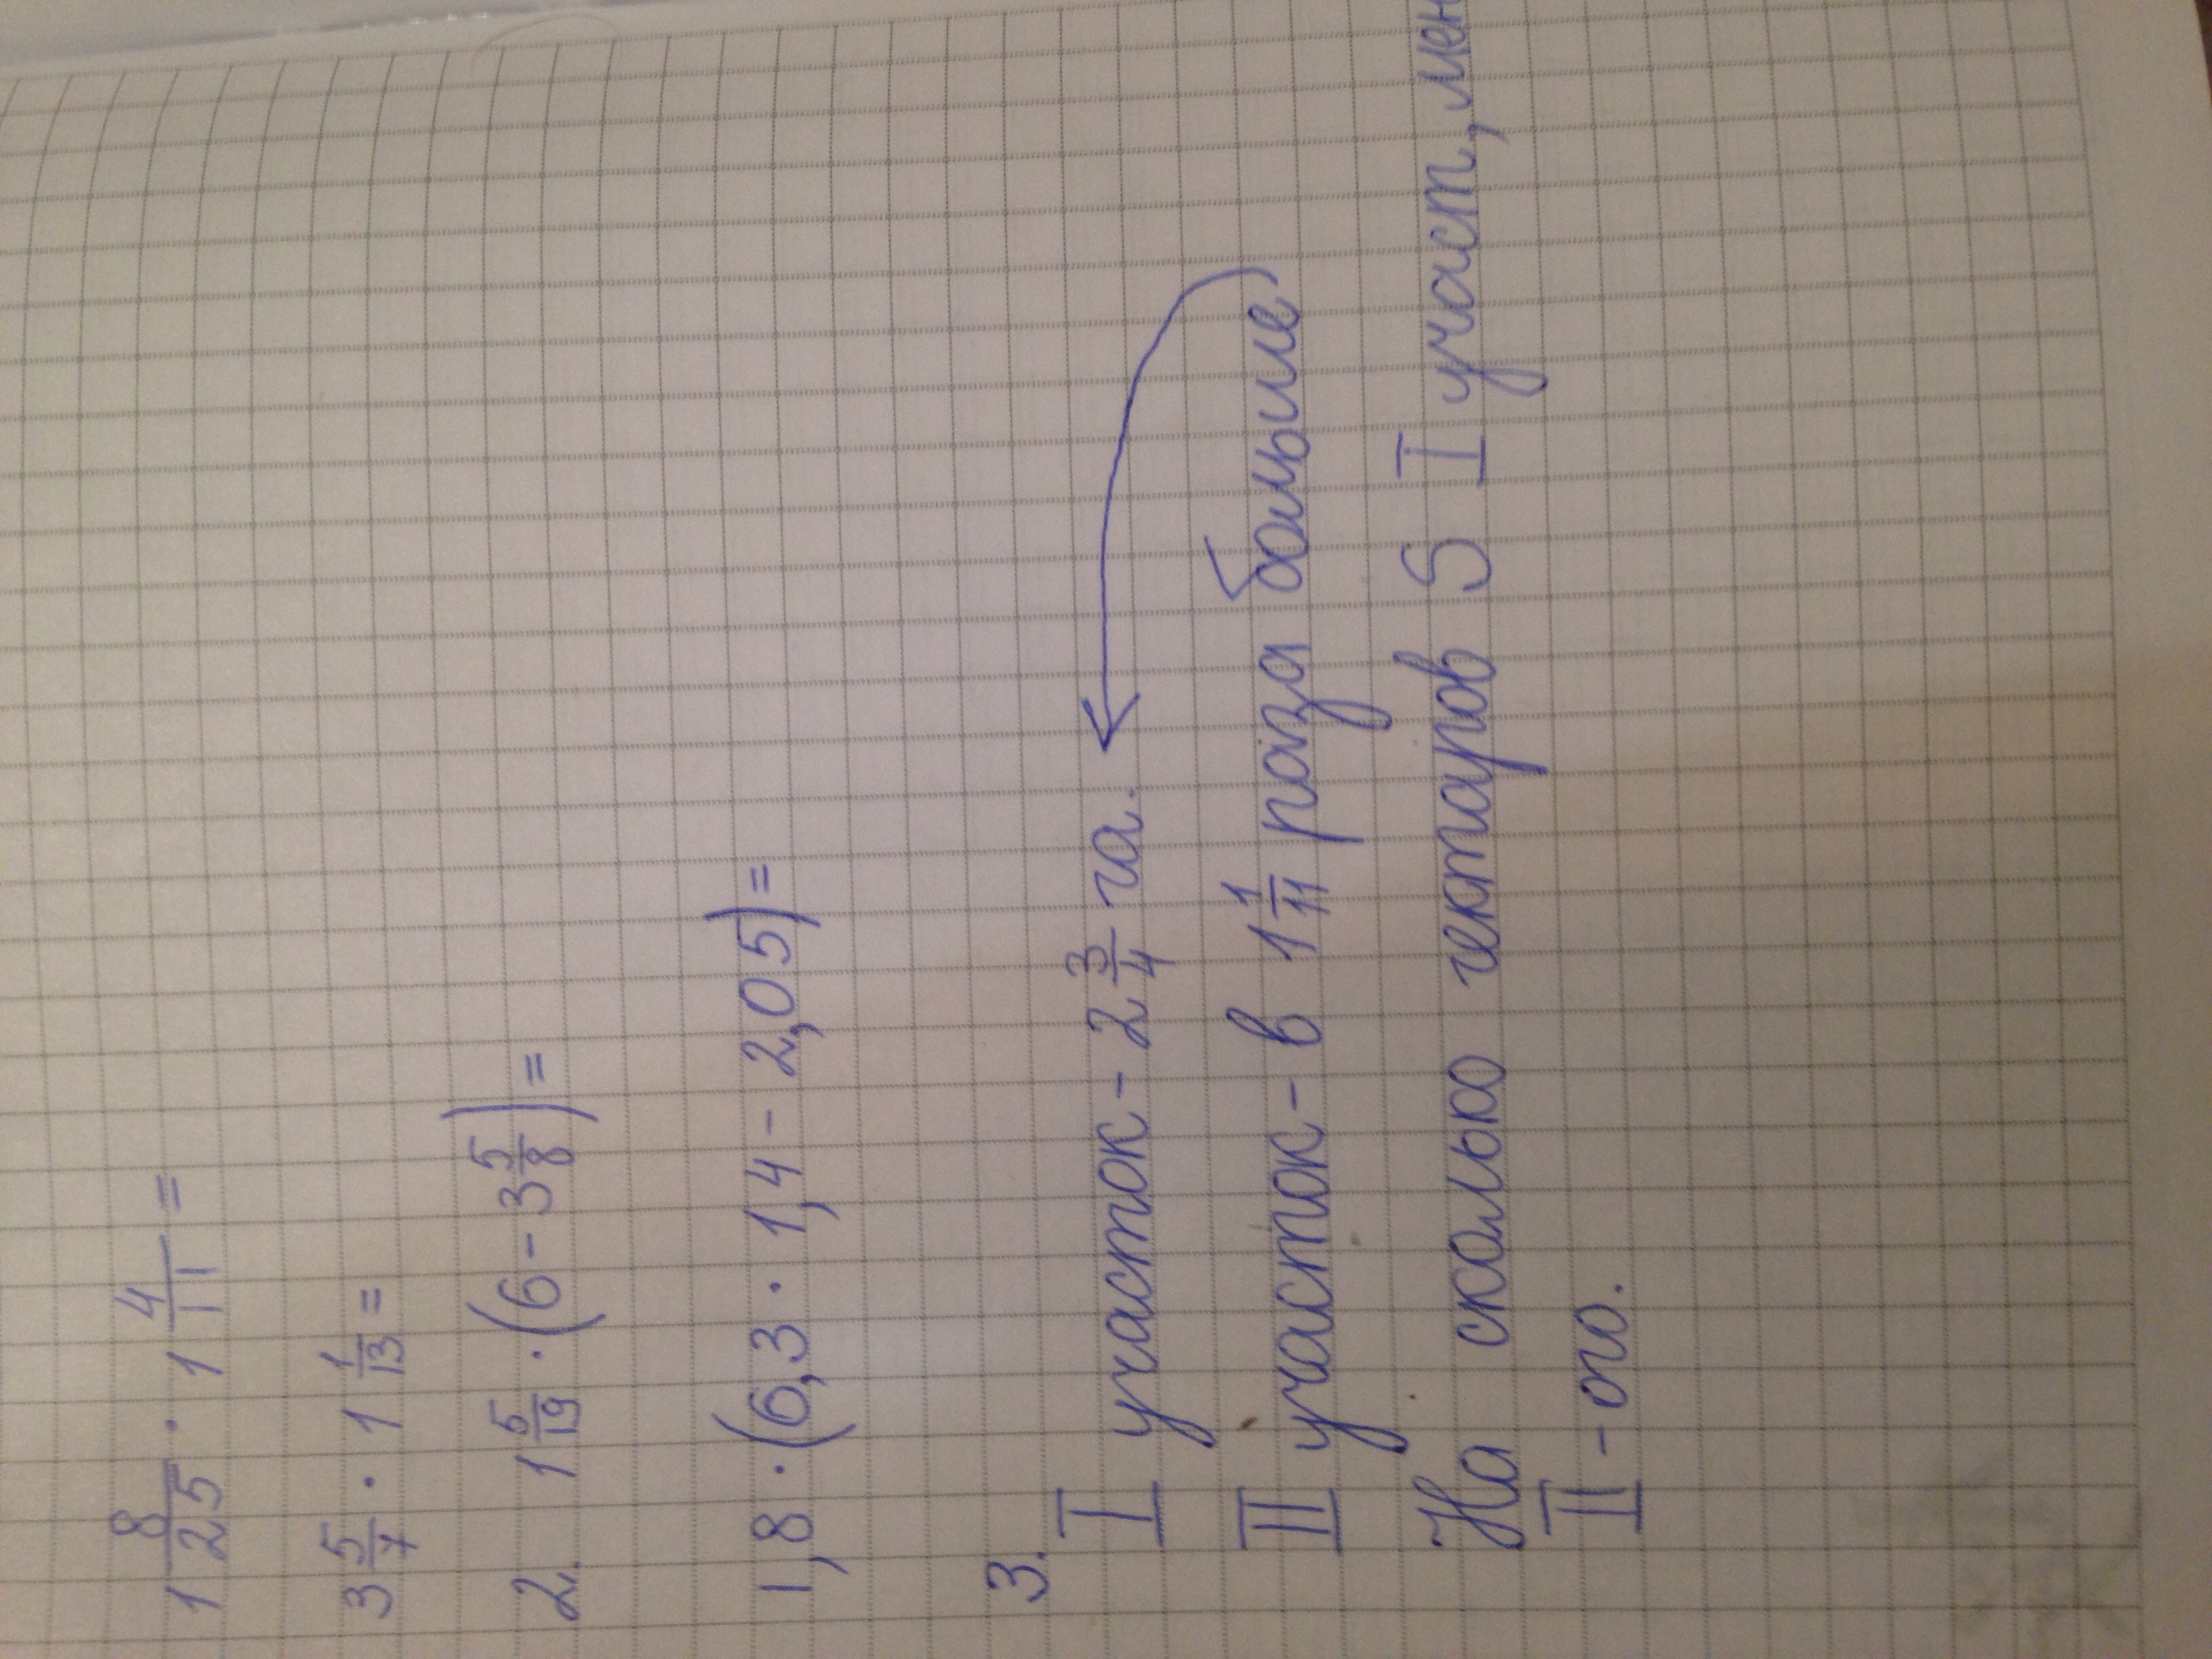 1 8/25 · 1 4/11 =
3 5/7 · 1 1/13 =
2. 1 5/19 · (6 - 3 5/8) =
1,8 · (6,3 · 1,4 - 2,05) =
3.
I участок - 2 3/4 га.
II участок - в 1 1/11 раза больше
На сколько гектаров S I участ, мен
II - ого.